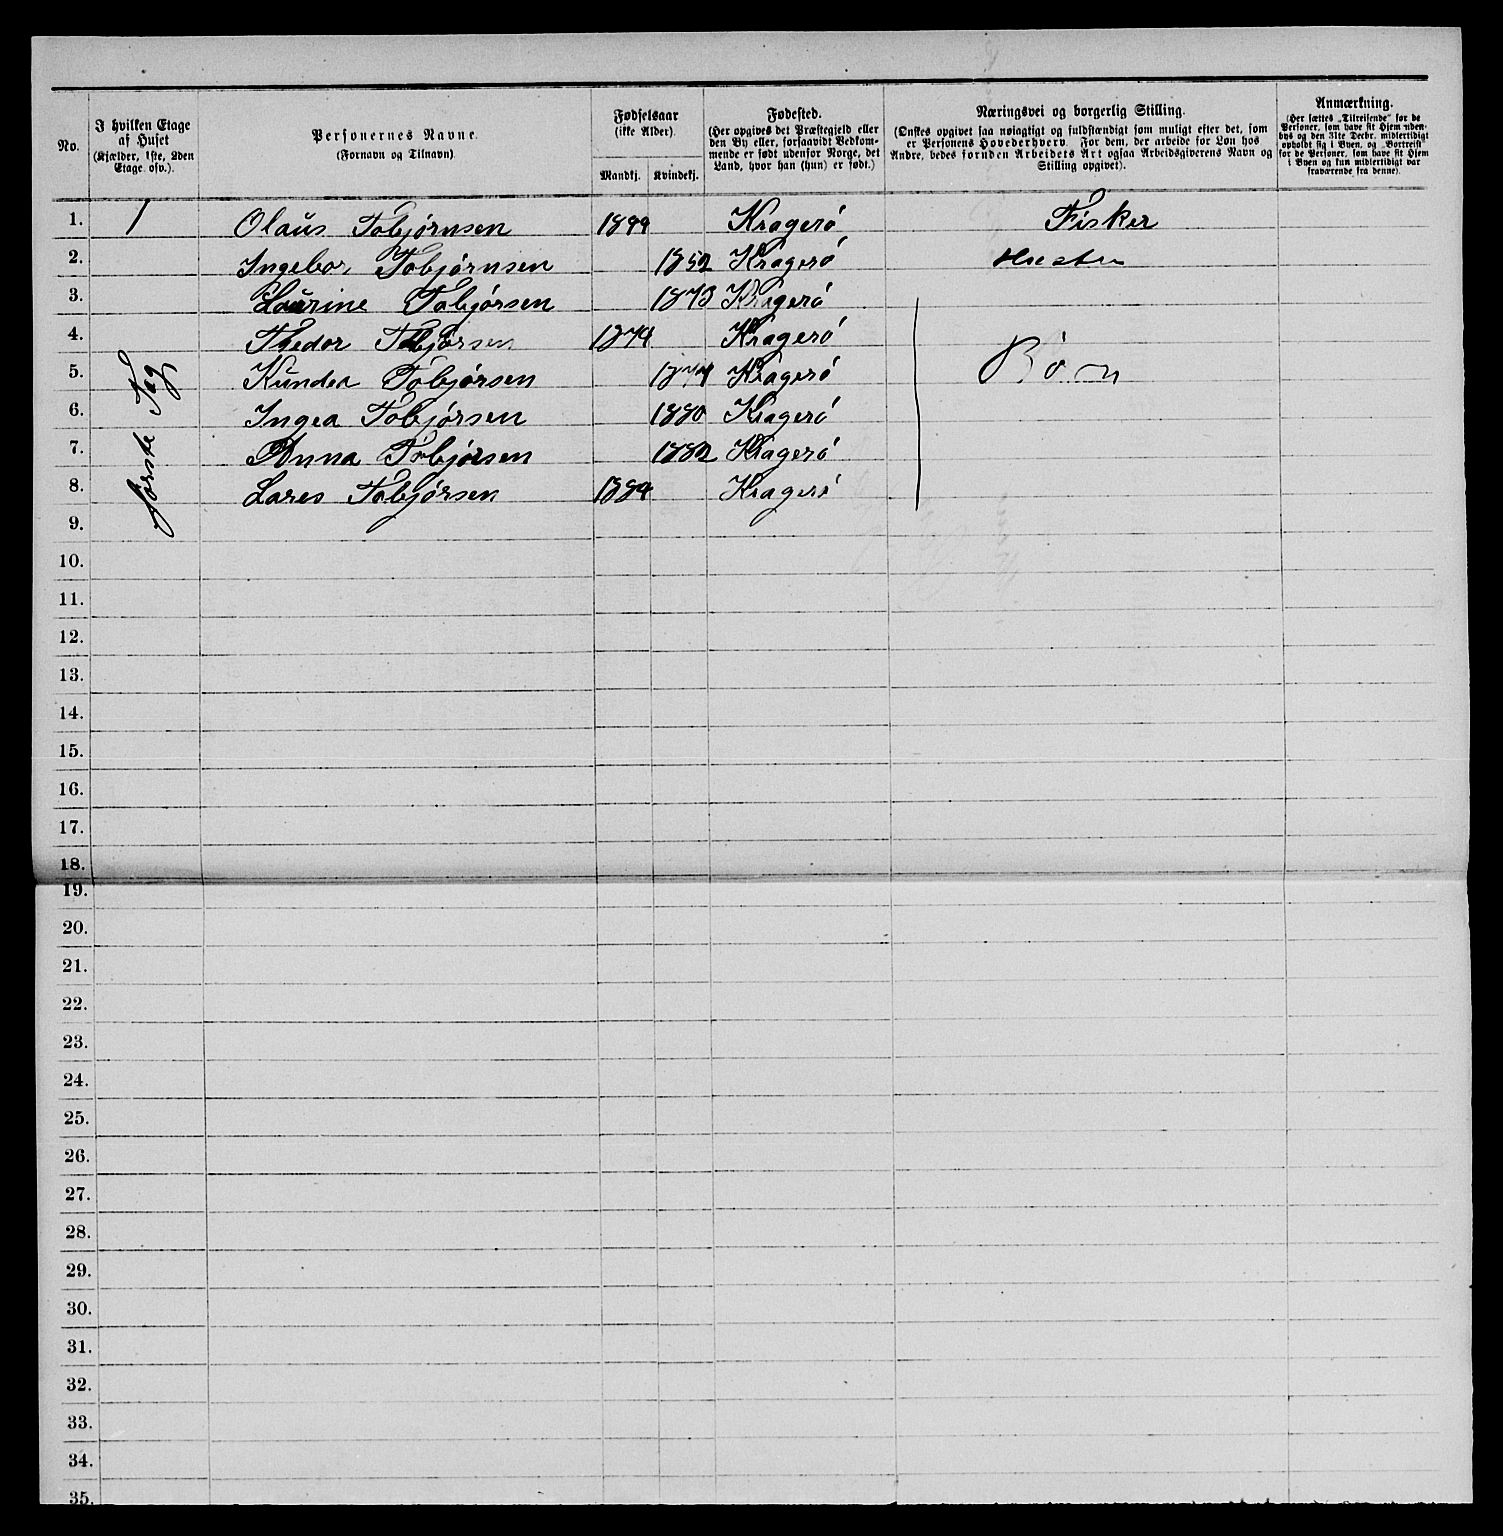 No.
I hvilken Etage
af Huset
(Kjælder, 1ste, 2den
Etage osv.).
Personernes Navne.
(Fornavn og Tilnavn)
Fødselsaar
(ikke Alder).
Mandkj. Kvindekj.
Fødested.
(Her opgives det Præstegjeld eller
den By eller, forsaavidt Vedkom-
mende er født udenfor Norge, det
Land, hvor han (hun) er født.)
Næringsvei og borgerlig Stilling.
(Ønskes opgivet saa nøiagtigt og fuldstændigt som muligt efter det, som
er Personens Hovederhverv. For dem, der arbeide for Løn hos
Andre, bedes foruden Arbeidets Art ogsaa Arbeidsgiverens Navn og
Stilling opgivet).
Anmærkning.
(Her sættes „Tilreisende“ for de
Personer, som have sit Hjem uden-
bys og den 31te Decbr. midlertidigt
opholdt sig i Byen, og „Bortreist“
for de Personer, som have sit Hjem
i Byen og kun midlertidigt var
fraværende fra denne).
1. 1 Olaus Tobjørnsen Kragerø Fisker
2. Ingebor Tobjørnsen 1852 Kragerø Hustru
3. Laurine Tobjørsen 1873 Kragerø
4. Thedor Tobjørsen 1874 Kragerø
5. Kundea Tobjørsen Kragerø Børn
6. Ingea Tobjørsen 1880 Kragerø
7. Anna Tobjørsen 1882 Kragerø
8. Lares Tobjørsen 1884 Kragerø
første Tag
9.
10.
11.
12.
13.
14.
15.
16.
17.
18.
19.
20.
21.
22.
23.
24.
25.
26.
27.
28.
29.
30.
31.
32.
33.
34.
35.